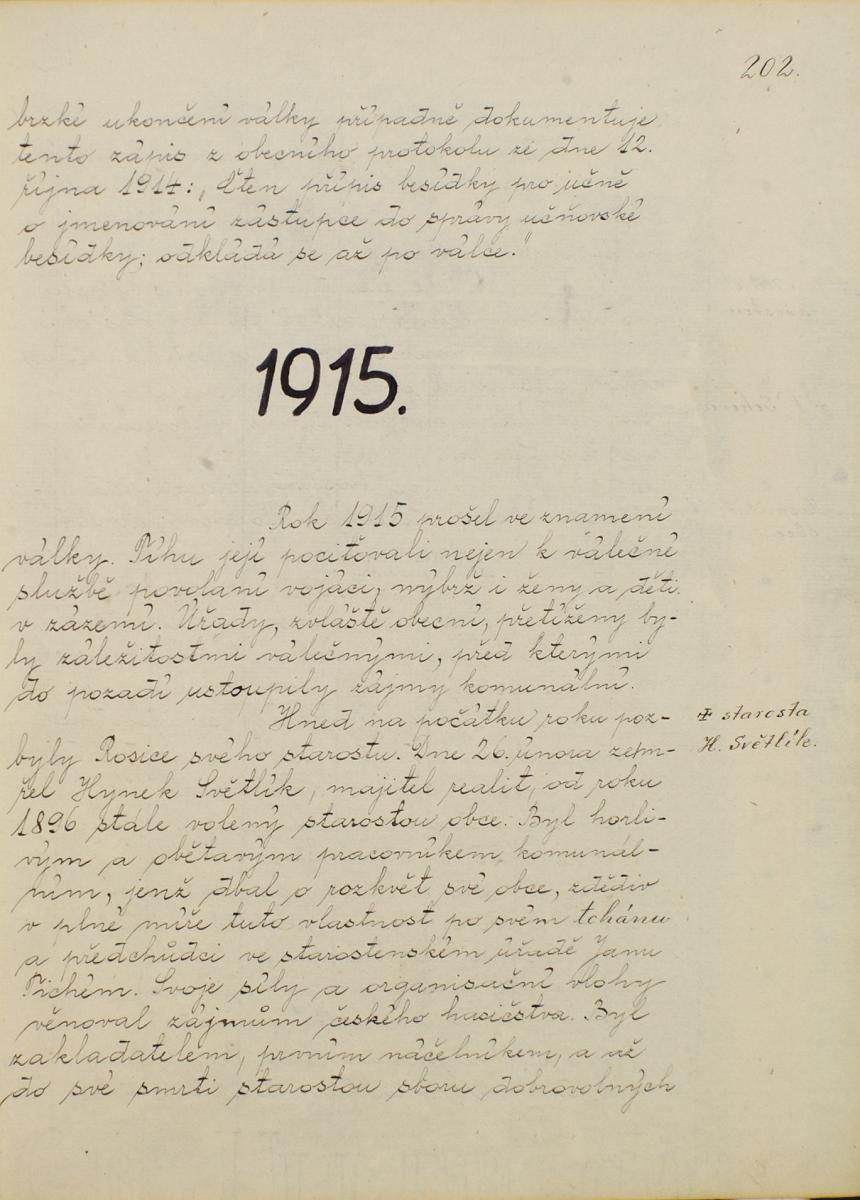 202.
brzké ukončení války případně dokumentuje
tento zápis z obecního protokolu ze dne 12.
října 1914: „Čten přípis besídky pro učně
o jmenování zástupce do správy učňovské
besídky; odkládá se až po válce."
1915.
Rok 1915 prošel ve znamení
války. Tíhu její pociťovali nejen k válečné
službě povolaní vojáci, nýbrž i ženy a děti
v zázemí. Úřady, zvláště obecní, přetíženy by-
ly záležitostmi válečnými, před kterými
do pozadí ustoupily zájmy komunální.
Hned na počátku roku poz-
byly Rosice svého starostu. Dne 26. února zem-
řel Hynek Světlík, majitel realit, od roku
1896 stále volený starostou obce. Byl horli-
vým a obětavým pracovníkem komunál-
ním, jenž dbal o rozkvět své obce, zdědiv
v plné míře tuto vlastnost po svém tchánu
a předchůdci ve starostenském úřadě Janu
Tichém. Svoje síly a organisační vlohy
věnoval zájmům českého hasičstva. Byl
zakladatelem, prvním náčelníkem, a až
do své smrti starostou sboru dobrovolných
✠ starosta
H. Světlík.